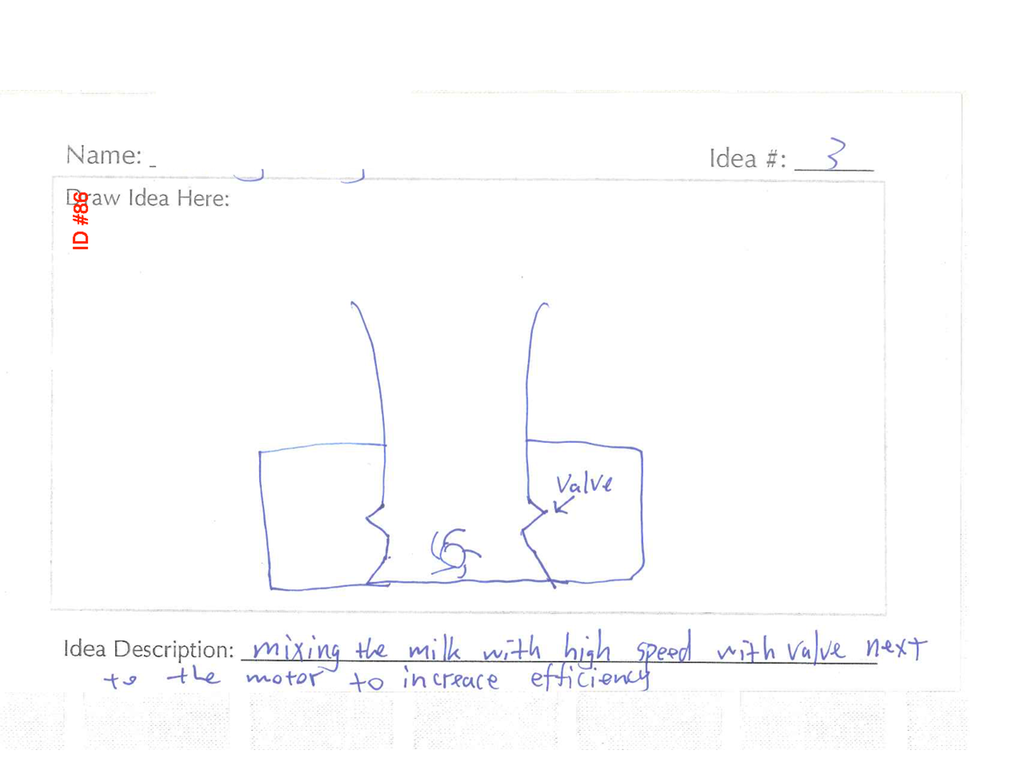 Name:
Idea #: 3
Draw Idea Here:
ID #86
Valve
Idea Description: mixing the milk with high speed with valve next
to the motor to increace efficiency